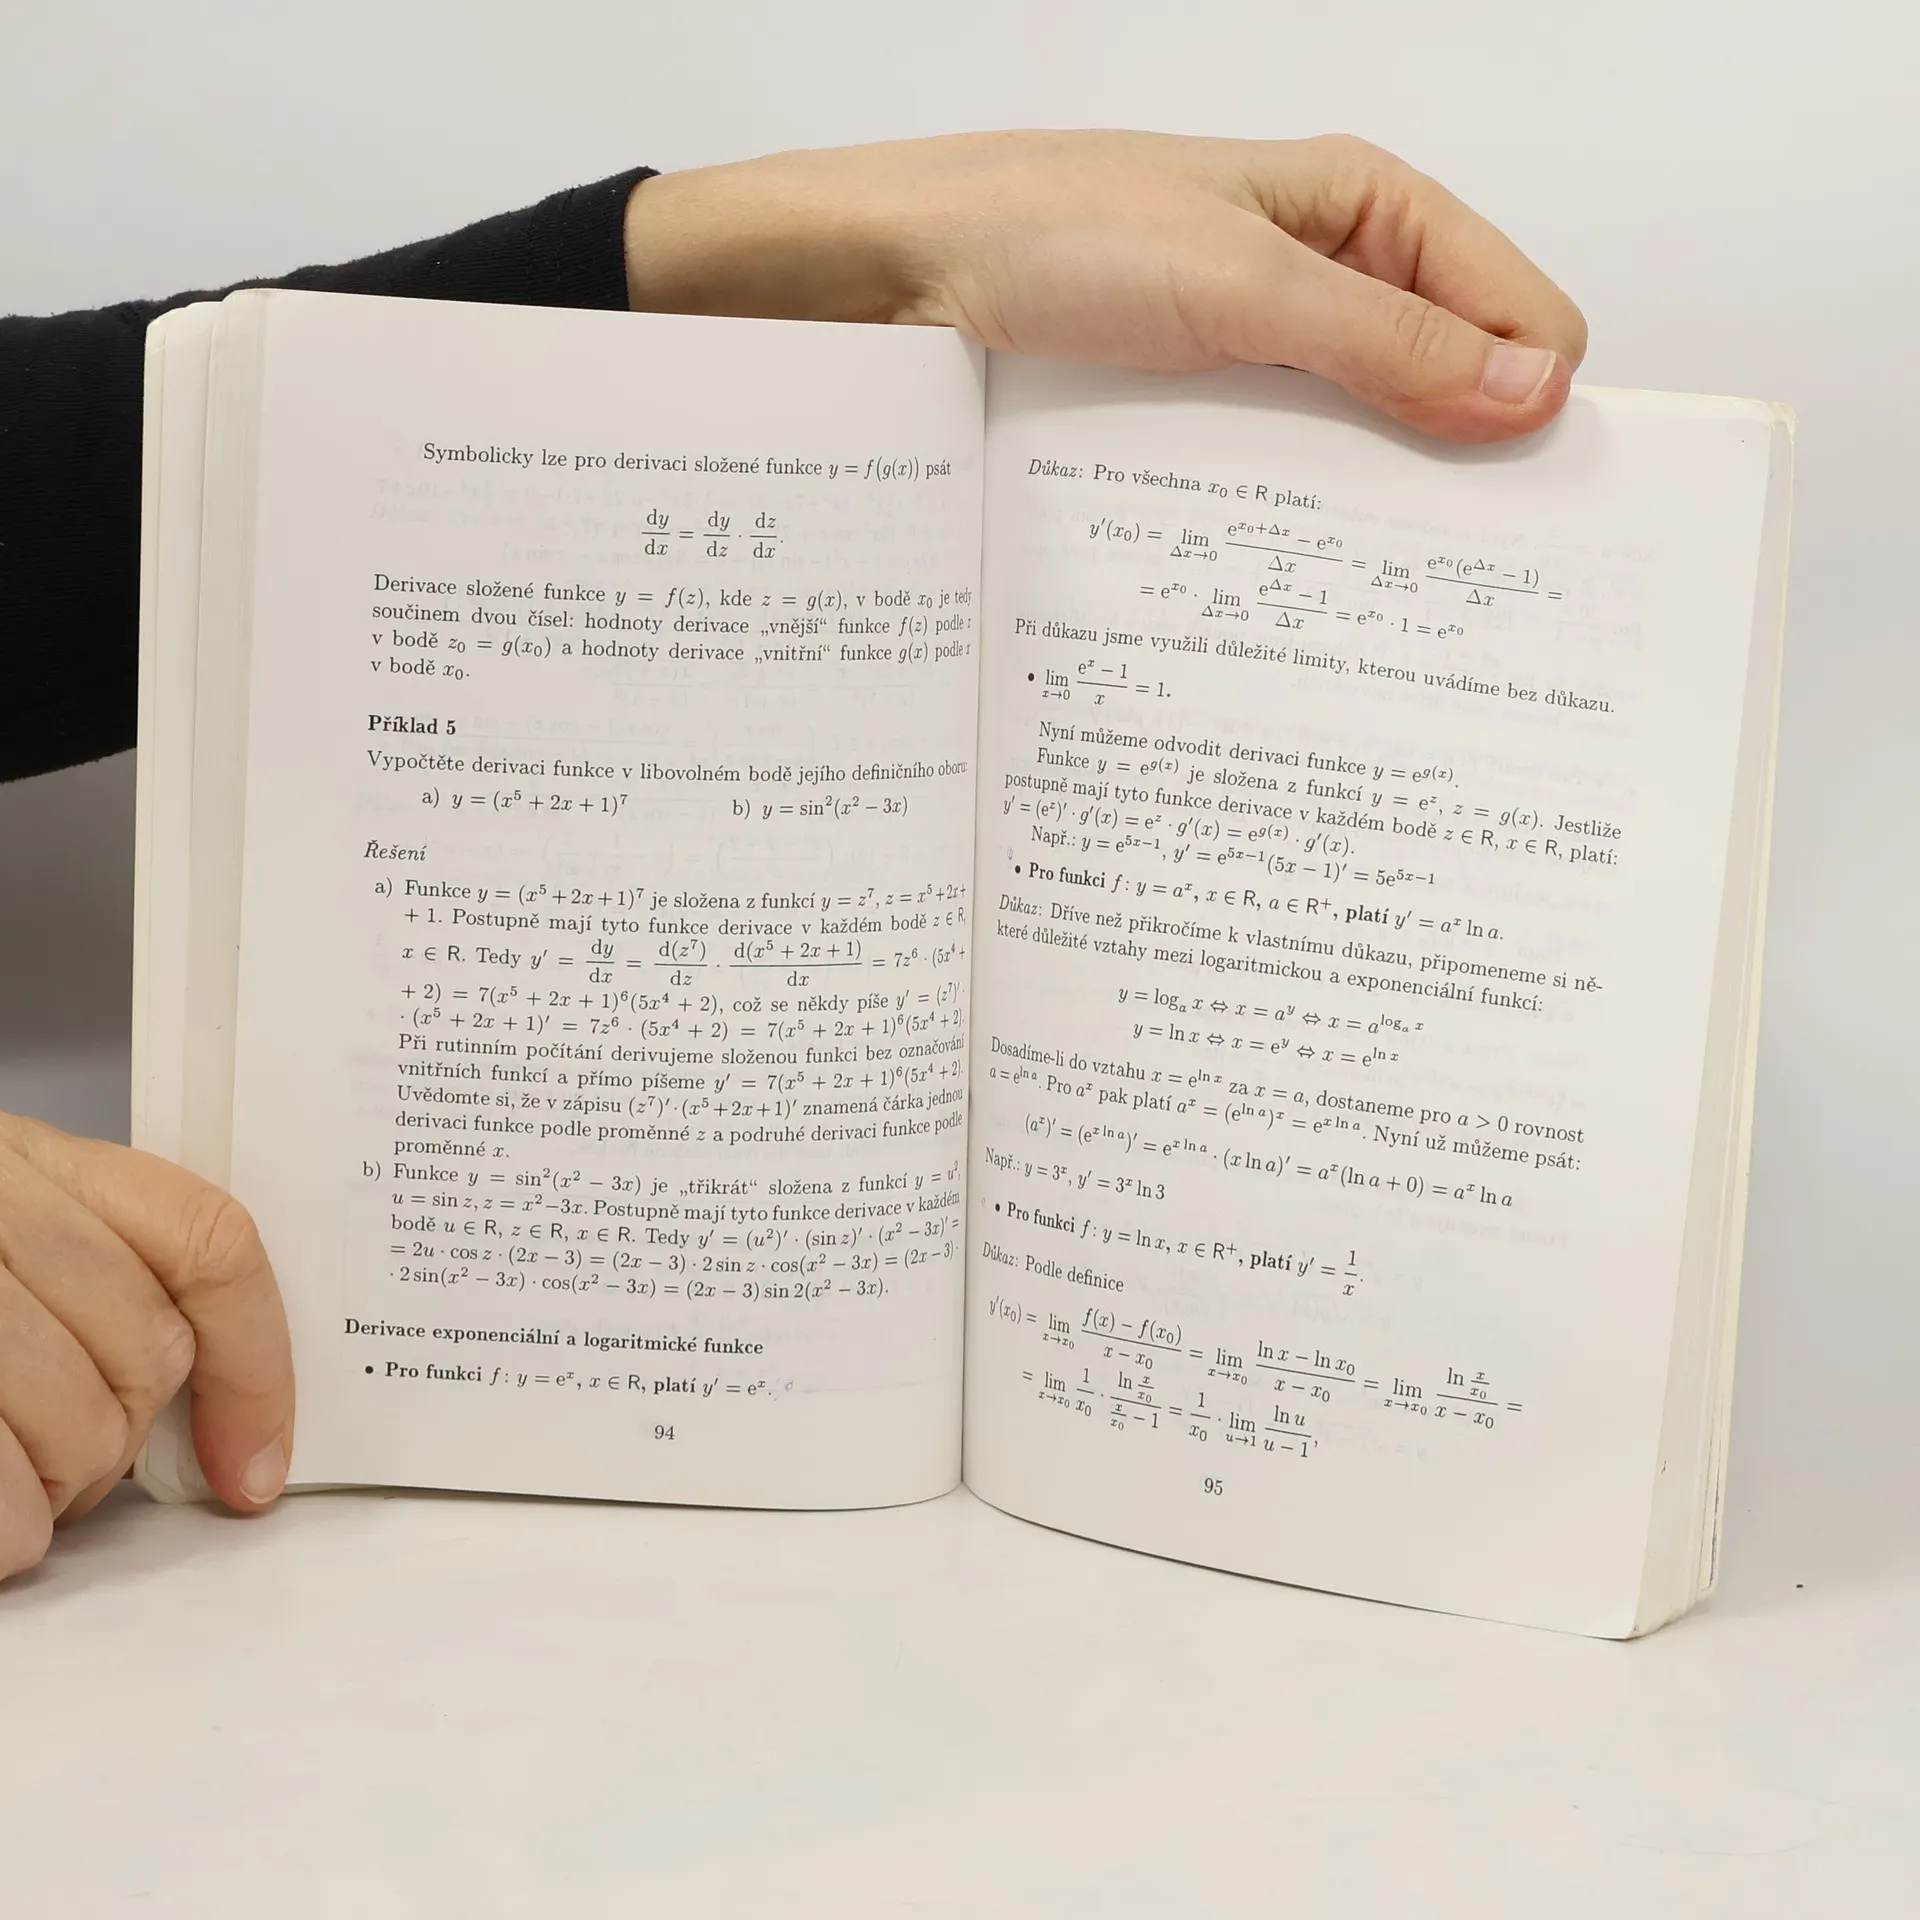 Symbolicky lze pro derivaci složené funkce y = f(g(x)) psát
dy/dx = dy/dz · dz/dx.
Derivace složené funkce y = f(z), kde z = g(x), v bodě x₀ je tedy
součinem dvou čísel: hodnoty derivace „vnější“ funkce f(z) podle z
v bodě z₀ = g(x₀) a hodnoty derivace „vnitřní“ funkce g(x) podle x
v bodě x₀.
Příklad 5
Vypočtěte derivaci funkce v libovolném bodě jejího definičního oboru:
a) y = (x⁵ + 2x + 1)⁷ b) y = sin²(x² − 3x)
Řešení
a) Funkce y = (x⁵ + 2x + 1)⁷ je složena z funkcí y = z⁷, z = x⁵ + 2x +
+ 1. Postupně mají tyto funkce derivace v každém bodě z ∈ R,
x ∈ R. Tedy y′ = dy/dx = d(z⁷)/dz · d(x⁵ + 2x + 1)/dx = 7z⁶ · (5x⁴ +
+ 2) = 7(x⁵ + 2x + 1)⁶(5x⁴ + 2), což se někdy píše y′ = (z⁷)′ ·
· (x⁵ + 2x + 1)′ = 7z⁶ · (5x⁴ + 2) = 7(x⁵ + 2x + 1)⁶(5x⁴ + 2).
Při rutinním počítání derivujeme složenou funkci bez označování
vnitřních funkcí a přímo píšeme y′ = 7(x⁵ + 2x + 1)⁶(5x⁴ + 2).
Uvědomte si, že v zápisu (z⁷)′ · (x⁵ + 2x + 1)′ znamená čárka jednou
derivaci funkce podle proměnné z a podruhé derivaci funkce podle
proměnné x.
b) Funkce y = sin²(x² − 3x) je „třikrát“ složena z funkcí y = u²,
u = sin z, z = x² − 3x. Postupně mají tyto funkce derivace v každém
bodě u ∈ R, z ∈ R, x ∈ R. Tedy y′ = (u²)′ · (sin z)′ · (x² − 3x)′ =
= 2u · cos z · (2x − 3) = (2x − 3) · 2 sin z · cos(x² − 3x) = (2x − 3) ·
· 2 sin(x² − 3x) · cos(x² − 3x) = (2x − 3) sin 2(x² − 3x).
Derivace exponenciální a logaritmické funkce
• Pro funkci f: y = eˣ, x ∈ R, platí y′ = eˣ.
94
Důkaz: Pro všechna x₀ ∈ R platí:
y′(x₀) = lim_{Δx→0} (e^{x₀+Δx} − e^{x₀})/Δx = lim_{Δx→0} e^{x₀}(e^{Δx} − 1)/Δx =
= e^{x₀} · lim_{Δx→0} (e^{Δx} − 1)/Δx = e^{x₀} · 1 = e^{x₀}
Při důkazu jsme využili důležité limity, kterou uvádíme bez důkazu.
• lim_{x→0} (eˣ − 1)/x = 1.
Nyní můžeme odvodit derivaci funkce y = e^{g(x)}.
Funkce y = e^{g(x)} je složena z funkcí y = e^z, z = g(x). Jestliže
postupně mají tyto funkce derivace v každém bodě z ∈ R, x ∈ R, platí:
y′ = (e^z)′ · g′(x) = e^z · g′(x) = e^{g(x)} · g′(x).
Např.: y = e^{5x−1}, y′ = e^{5x−1}(5x − 1)′ = 5e^{5x−1}
• Pro funkci f: y = aˣ, x ∈ R, a ∈ R⁺, platí y′ = aˣ ln a.
Důkaz: Dříve než přikročíme k vlastnímu důkazu, připomeneme si ně-
které důležité vztahy mezi logaritmickou a exponenciální funkcí:
y = logₐ x ⇔ x = a^y ⇔ x = a^{logₐ x}
y = ln x ⇔ x = e^y ⇔ x = e^{ln x}
Dosadíme-li do vztahu x = e^{ln x} za x = a, dostaneme pro a > 0 rovnost
a = e^{ln a}. Pro aˣ pak platí aˣ = (e^{ln a})ˣ = e^{x ln a}. Nyní už můžeme psát:
(aˣ)′ = (e^{x ln a})′ = e^{x ln a} · (x ln a)′ = aˣ(ln a + 0) = aˣ ln a
Např.: y = 3ˣ, y′ = 3ˣ ln 3
• Pro funkci f: y = ln x, x ∈ R⁺, platí y′ = 1/x.
Důkaz: Podle definice
y′(x₀) = lim_{x→x₀} (f(x) − f(x₀))/(x − x₀) = lim_{x→x₀} (ln x − ln x₀)/(x − x₀) = lim_{x→x₀} (ln x/x₀)/(x − x₀) =
= lim_{x→x₀} 1/x₀ · (ln x/x₀)/(x/x₀ − 1) = 1/x₀ · lim_{u→1} ln u/(u − 1),
95